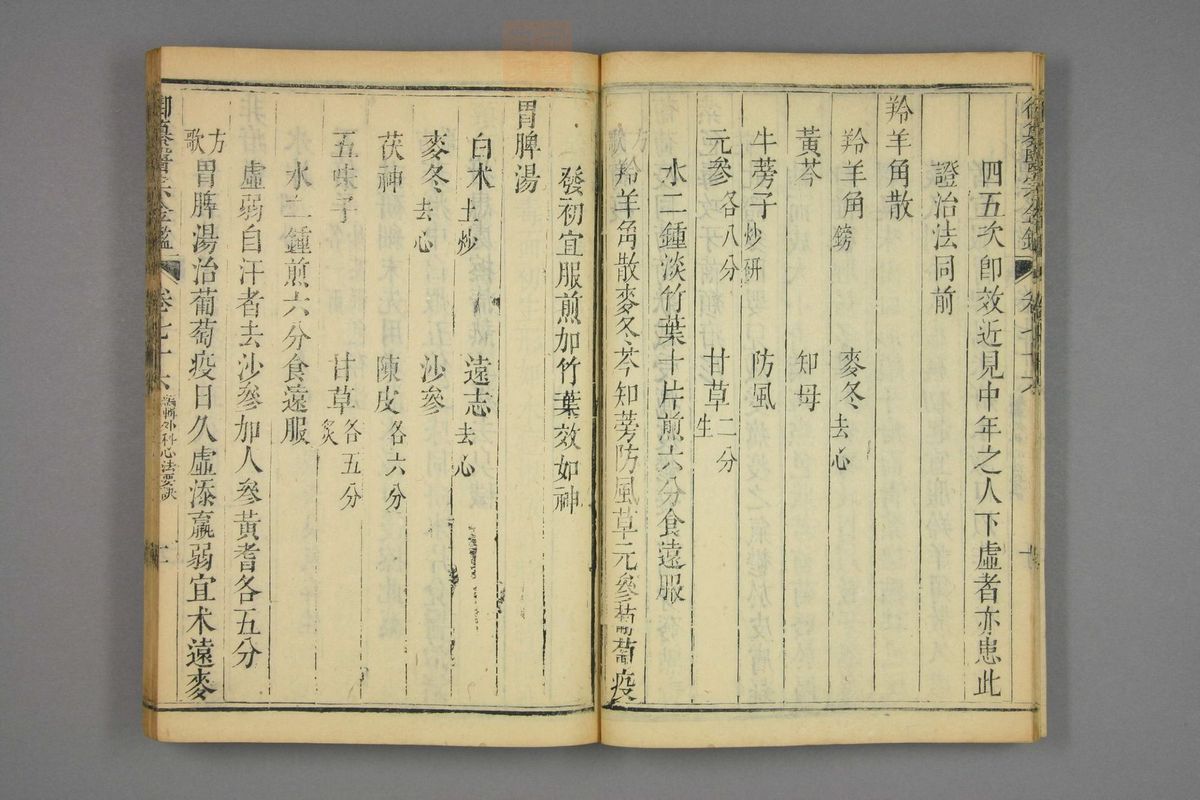 四五次卽效近見中年之人下虛者亦患此
證治法同前
羚羊角散
羚羊角鎊 麥冬去心
黃芩 知母
牛蒡子炒研 防風
元參各八分 甘草生二分
水二鍾淡竹葉十片煎六分食遠服
方歌 羚羊角散麥冬芩知蒡防風草元參葡萄疫
發初宜服煎加竹葉效如神
胃脾湯
白术土炒 遠志去心
麥冬去心 沙參
茯神 陳皮各六分
五味子 甘草炙各五分
水二鍾煎六分食遠服
虛弱自汗者去沙參加人參黃耆各五分
方歌 胃脾湯治葡萄疫日久虛添羸弱宜术遠麥
御纂醫宗金鑑 卷七十六 編輯外科心法要訣